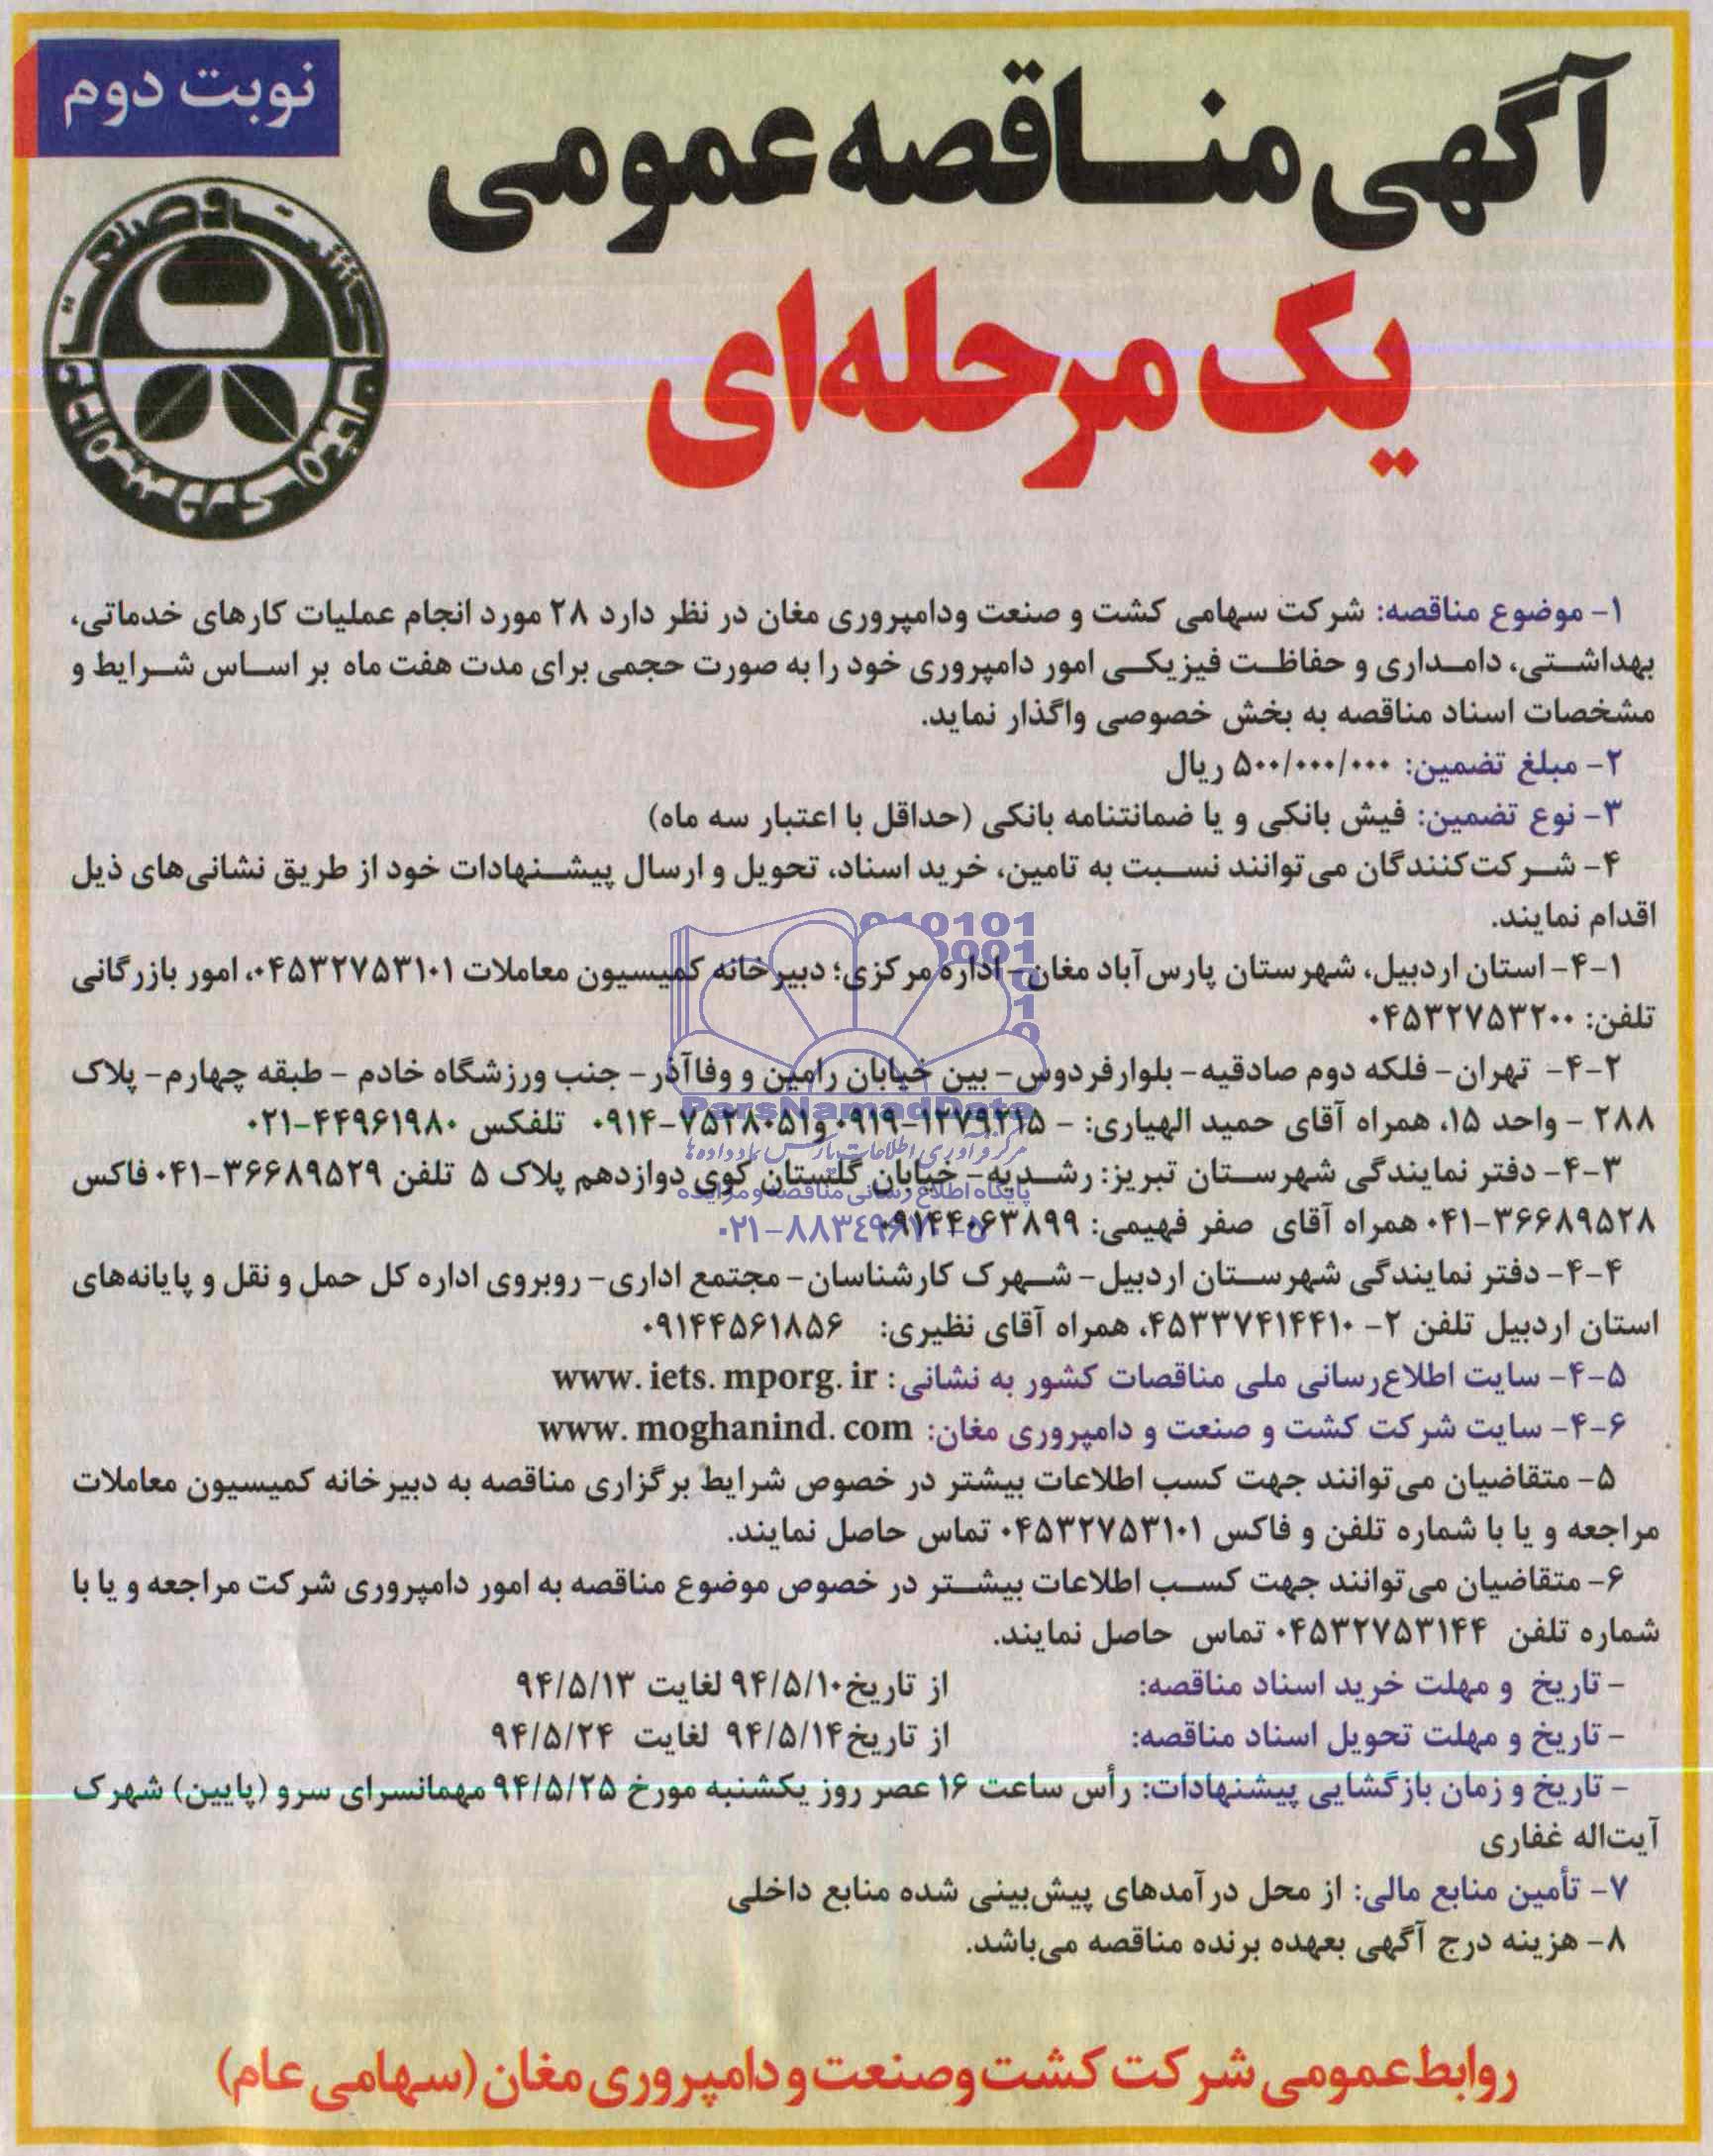 نوبت دوم
آگهی مناقصه عمومی
یک مرحله‌ای
۱- موضوع مناقصه: شرکت سهامی کشت و صنعت ودامپروری مغان در نظر دارد ۲۸ مورد انجام عملیات کارهای خدماتی،
بهداشتی، دامداری و حفاظت فیزیکی امور دامپروری خود را به صورت حجمی برای مدت هفت ماه بر اساس شرایط و
مشخصات اسناد مناقصه به بخش خصوصی واگذار نماید.
۲- مبلغ تضمین: ۵۰۰/۰۰۰/۰۰۰ ریال
۳- نوع تضمین: فیش بانکی و یا ضمانتنامه بانکی (حداقل با اعتبار سه ماه)
۴- شرکت‌کنندگان می‌توانند نسبت به تامین، خرید اسناد، تحویل و ارسال پیشنهادات خود از طریق نشانی‌های ذیل
اقدام نمایند.
۴-۱- استان اردبیل، شهرستان پارس‌آباد مغان- اداره مرکزی؛ دبیرخانه کمیسیون معاملات ۰۴۵۳۲۷۵۳۱۰۱، امور بازرگانی
تلفن: ۰۴۵۳۲۷۵۳۲۰۰
۴-۲- تهران- فلکه دوم صادقیه- بلوارفردوس- بین خیابان رامین و وفاآذر- جنب ورزشگاه خادم - طبقه چهارم- پلاک
۲۸۸ - واحد ۱۵، همراه آقای حمید الهیاری: - ۰۹۱۹-۱۲۷۹۲۱۵ و ۰۹۱۴-۷۵۲۸۰۵۱ تلفکس ۰۲۱-۴۴۹۶۱۹۸۰
۴-۳- دفتر نمایندگی شهرستان تبریز: رشدیه- خیابان گلستان کوی دوازدهم پلاک ۵ تلفن ۰۴۱-۳۶۶۸۹۵۲۹ فاکس
۰۴۱-۳۶۶۸۹۵۲۸ همراه آقای صفر فهیمی: ۰۹۱۴۴۰۶۳۸۹۹
۴-۴- دفتر نمایندگی شهرستان اردبیل- شهرک کارشناسان- مجتمع اداری- روبروی اداره کل حمل و نقل و پایانه‌های
استان اردبیل تلفن ۲- ۰۴۵۳۳۷۴۱۴۴۱، همراه آقای نظیری: ۰۹۱۴۴۵۶۱۸۵۶
۴-۵- سایت اطلاع‌رسانی ملی مناقصات کشور به نشانی: www.iets.mporg.ir
۴-۶- سایت شرکت کشت و صنعت و دامپروری مغان: www.moghanind.com
۵- متقاضیان می‌توانند جهت کسب اطلاعات بیشتر در خصوص شرایط برگزاری مناقصه به دبیرخانه کمیسیون معاملات
مراجعه و یا با شماره تلفن و فاکس ۰۴۵۳۲۷۵۳۱۰۱ تماس حاصل نمایند.
۶- متقاضیان می‌توانند جهت کسب اطلاعات بیشتر در خصوص موضوع مناقصه به امور دامپروری شرکت مراجعه و یا با
شماره تلفن ۰۴۵۳۲۷۵۳۱۴۴ تماس حاصل نمایند.
- تاریخ و مهلت خرید اسناد مناقصه: از تاریخ۹۴/۵/۱۰ لغایت ۹۴/۵/۱۳
- تاریخ و مهلت تحویل اسناد مناقصه: از تاریخ۹۴/۵/۱۴ لغایت ۹۴/۵/۲۴
- تاریخ و زمان بازگشایی پیشنهادات: رأس ساعت ۱۶ عصر روز یکشنبه مورخ ۹۴/۵/۲۵ مهمانسرای سرو (پایین) شهرک
آیت‌اله غفاری
۷- تأمین منابع مالی: از محل درآمدهای پیش‌بینی شده منابع داخلی
۸- هزینه درج آگهی بعهده برنده مناقصه می‌باشد.
روابط‌عمومی شرکت کشت‌وصنعت‌و‌دامپروری مغان (سهامی عام)
ParsNamadData
پایگاه اطلاع رسانی مناقصه و مزایده
۰۲۱-۸۸۳۴۹۶۷۰-۵